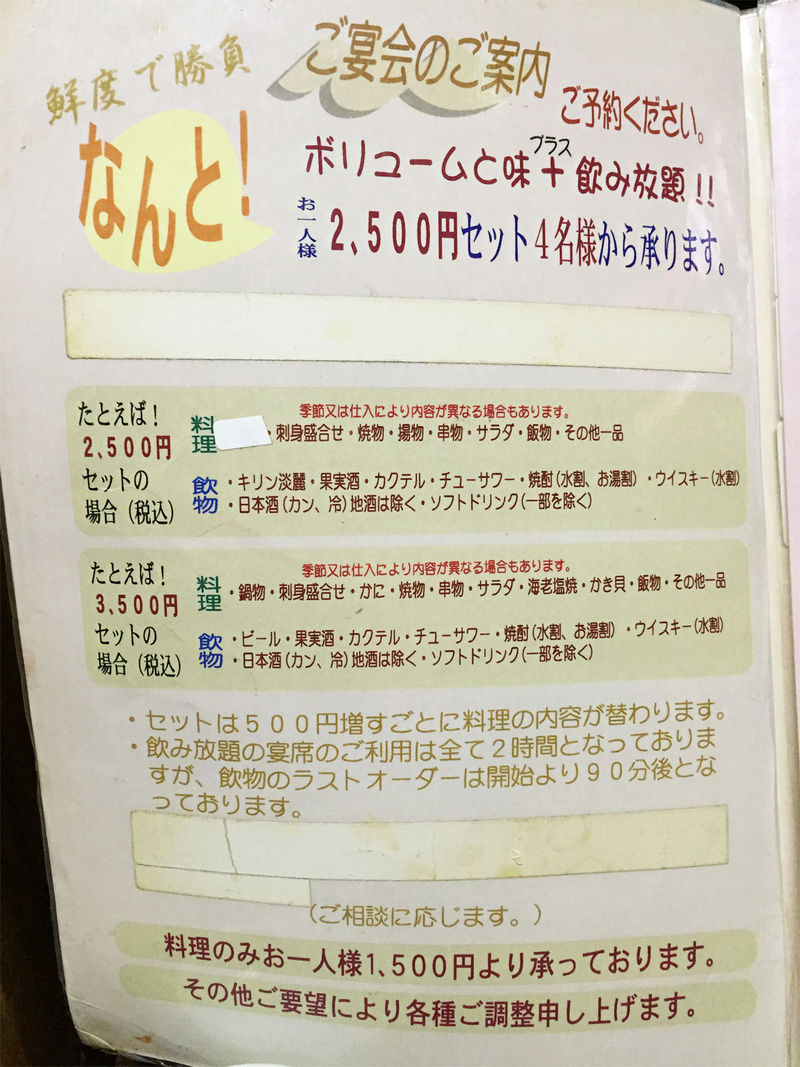 鮮度で勝負
ご宴会のご案内
ご予約ください。
なんと!
ボリュームと味+プラス飲み放題!!
お一人様2,500円セット4名様から承ります。
たとえば!
2,500円
セットの
場合(税込)
料理
季節又は仕入により内容が異なる場合もあります。
・刺身盛合せ・焼物・揚物・串物・サラダ・飯物・その他一品
飲物
・キリン淡麗・果実酒・カクテル・チューサワー・焼酎(水割、お湯割)・ウイスキー(水割)
・日本酒(カン、冷)地酒は除く・ソフトドリンク(一部を除く)
たとえば!
3,500円
セットの
場合(税込)
料理
季節又は仕入により内容が異なる場合もあります。
・鍋物・刺身盛合せ・かに・焼物・串物・サラダ・海老塩焼・かき貝・飯物・その他一品
飲物
・ビール・果実酒・カクテル・チューサワー・焼酎(水割、お湯割)・ウイスキー(水割)
・日本酒(カン、冷)地酒は除く・ソフトドリンク(一部を除く)
・セットは500円増すごとに料理の内容が替わります。
・飲み放題の宴席のご利用は全て2時間となっておりま
すが、飲物のラストオーダーは開始より90分後とな
っております。
(ご相談に応じます。)
料理のみお一人様1,500円より承っております。
その他ご要望により各種ご調整申し上げます。